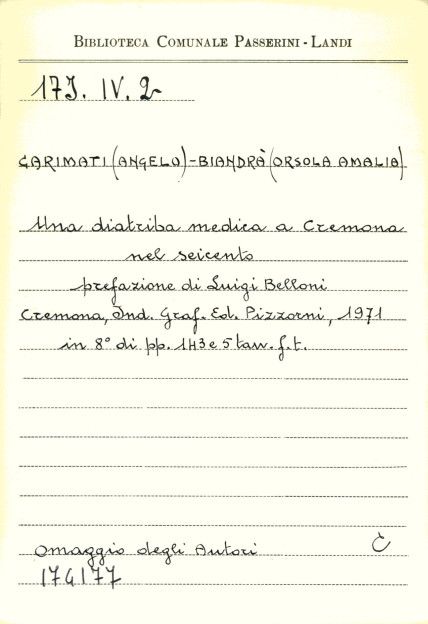 BIBLIOTECA COMUNALE PASSERINI - LANDI
17J. IV. 2
GARIMATI (ANGELO) - BIANDRÀ (ORSOLA AMALIA)
Una diatriba medica a Cremona
nel seicento
prefazione di Luigi Belloni
Cremona, Ind. Graf. Ed. Pizzorni, 1971
in 8° di pp. 143 e 5 tav. f. t.
Omaggio degli Autori
174177